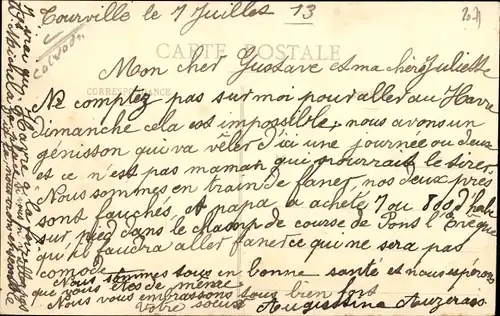 Tourville le 7 Juillet 13
CARTE POSTALE
CORRESPONDANCE
Calvados
Mon cher Gustave et ma chère Juliette
Ne comptez pas sur moi pour aller au Havre
Dimanche cela est impossible, nous avons un
génisson qui va vêler d'ici une journée ou deux
et ce n'est pas maman qui pourrait le tirer.
Nous sommes en train de faner nos deux prés
sont fauchés, et papa a acheté 7 ou 800 d'herbe
sur pied dans le champ de course de Pont l'Evêque
qu'il faudra aller faner ce qui ne sera pas
comode
Nous sommes tous en bonne santé et nous espérons
que vous êtes de même
Nous vous embrassons tous bien fort
Votre soeur Augustine Auzerais